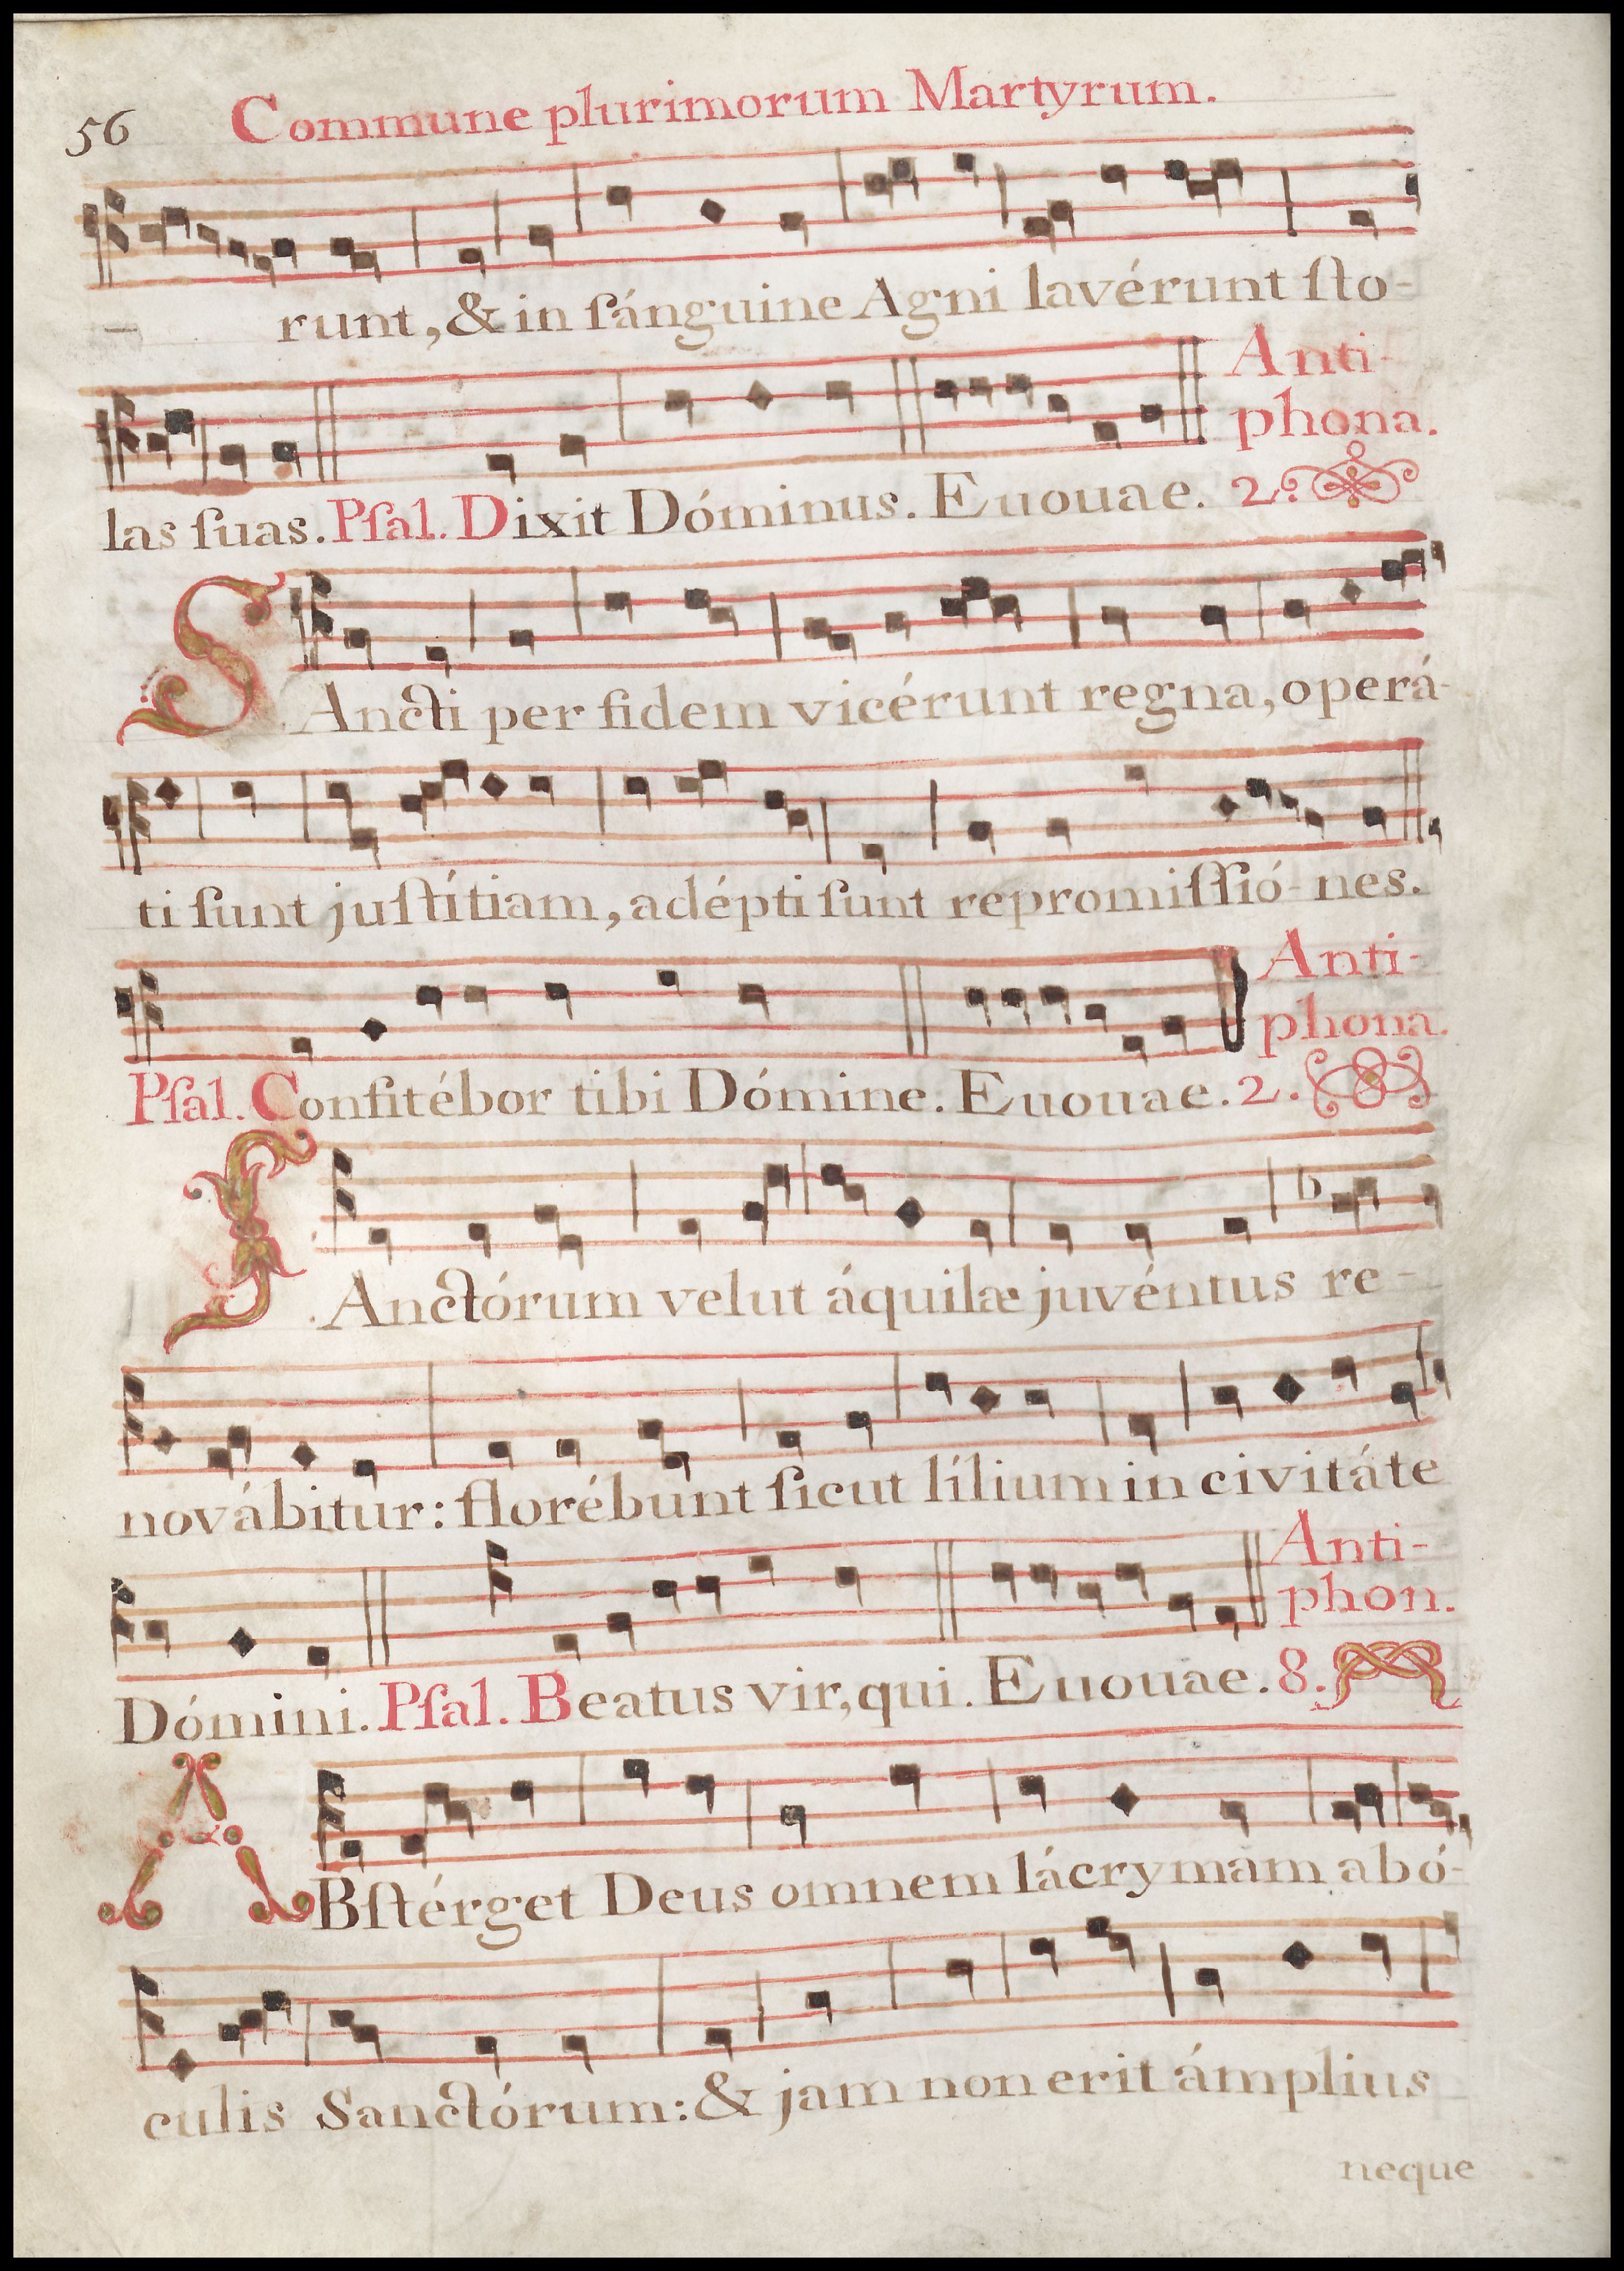 56 Commune plurimorum Martyrum.
runt, & in ſánguine Agni lavérunt ſto-
las ſuas. Pſal. Dixit Dóminus. Euouae. Anti-
phona.
2.
SAncti per fidem vicérunt regna, operá-
ti ſunt juſtítiam, adépti ſunt repromiſſió-nes.
Pſal. Confitébor tibi Dómine. Euouae. Anti-
phona.
2.
SAnctórum velut áquilæ juvéntus re-
novábitur: florébunt ſicut lílium in civitáte
Dómini. Pſal. Beatus vir, qui. Euouae. Anti-
phon.
8.
ABſtérget Deus omnem lácrymam abó-
culis Sanctórum: & jam non erit ámplius
neque